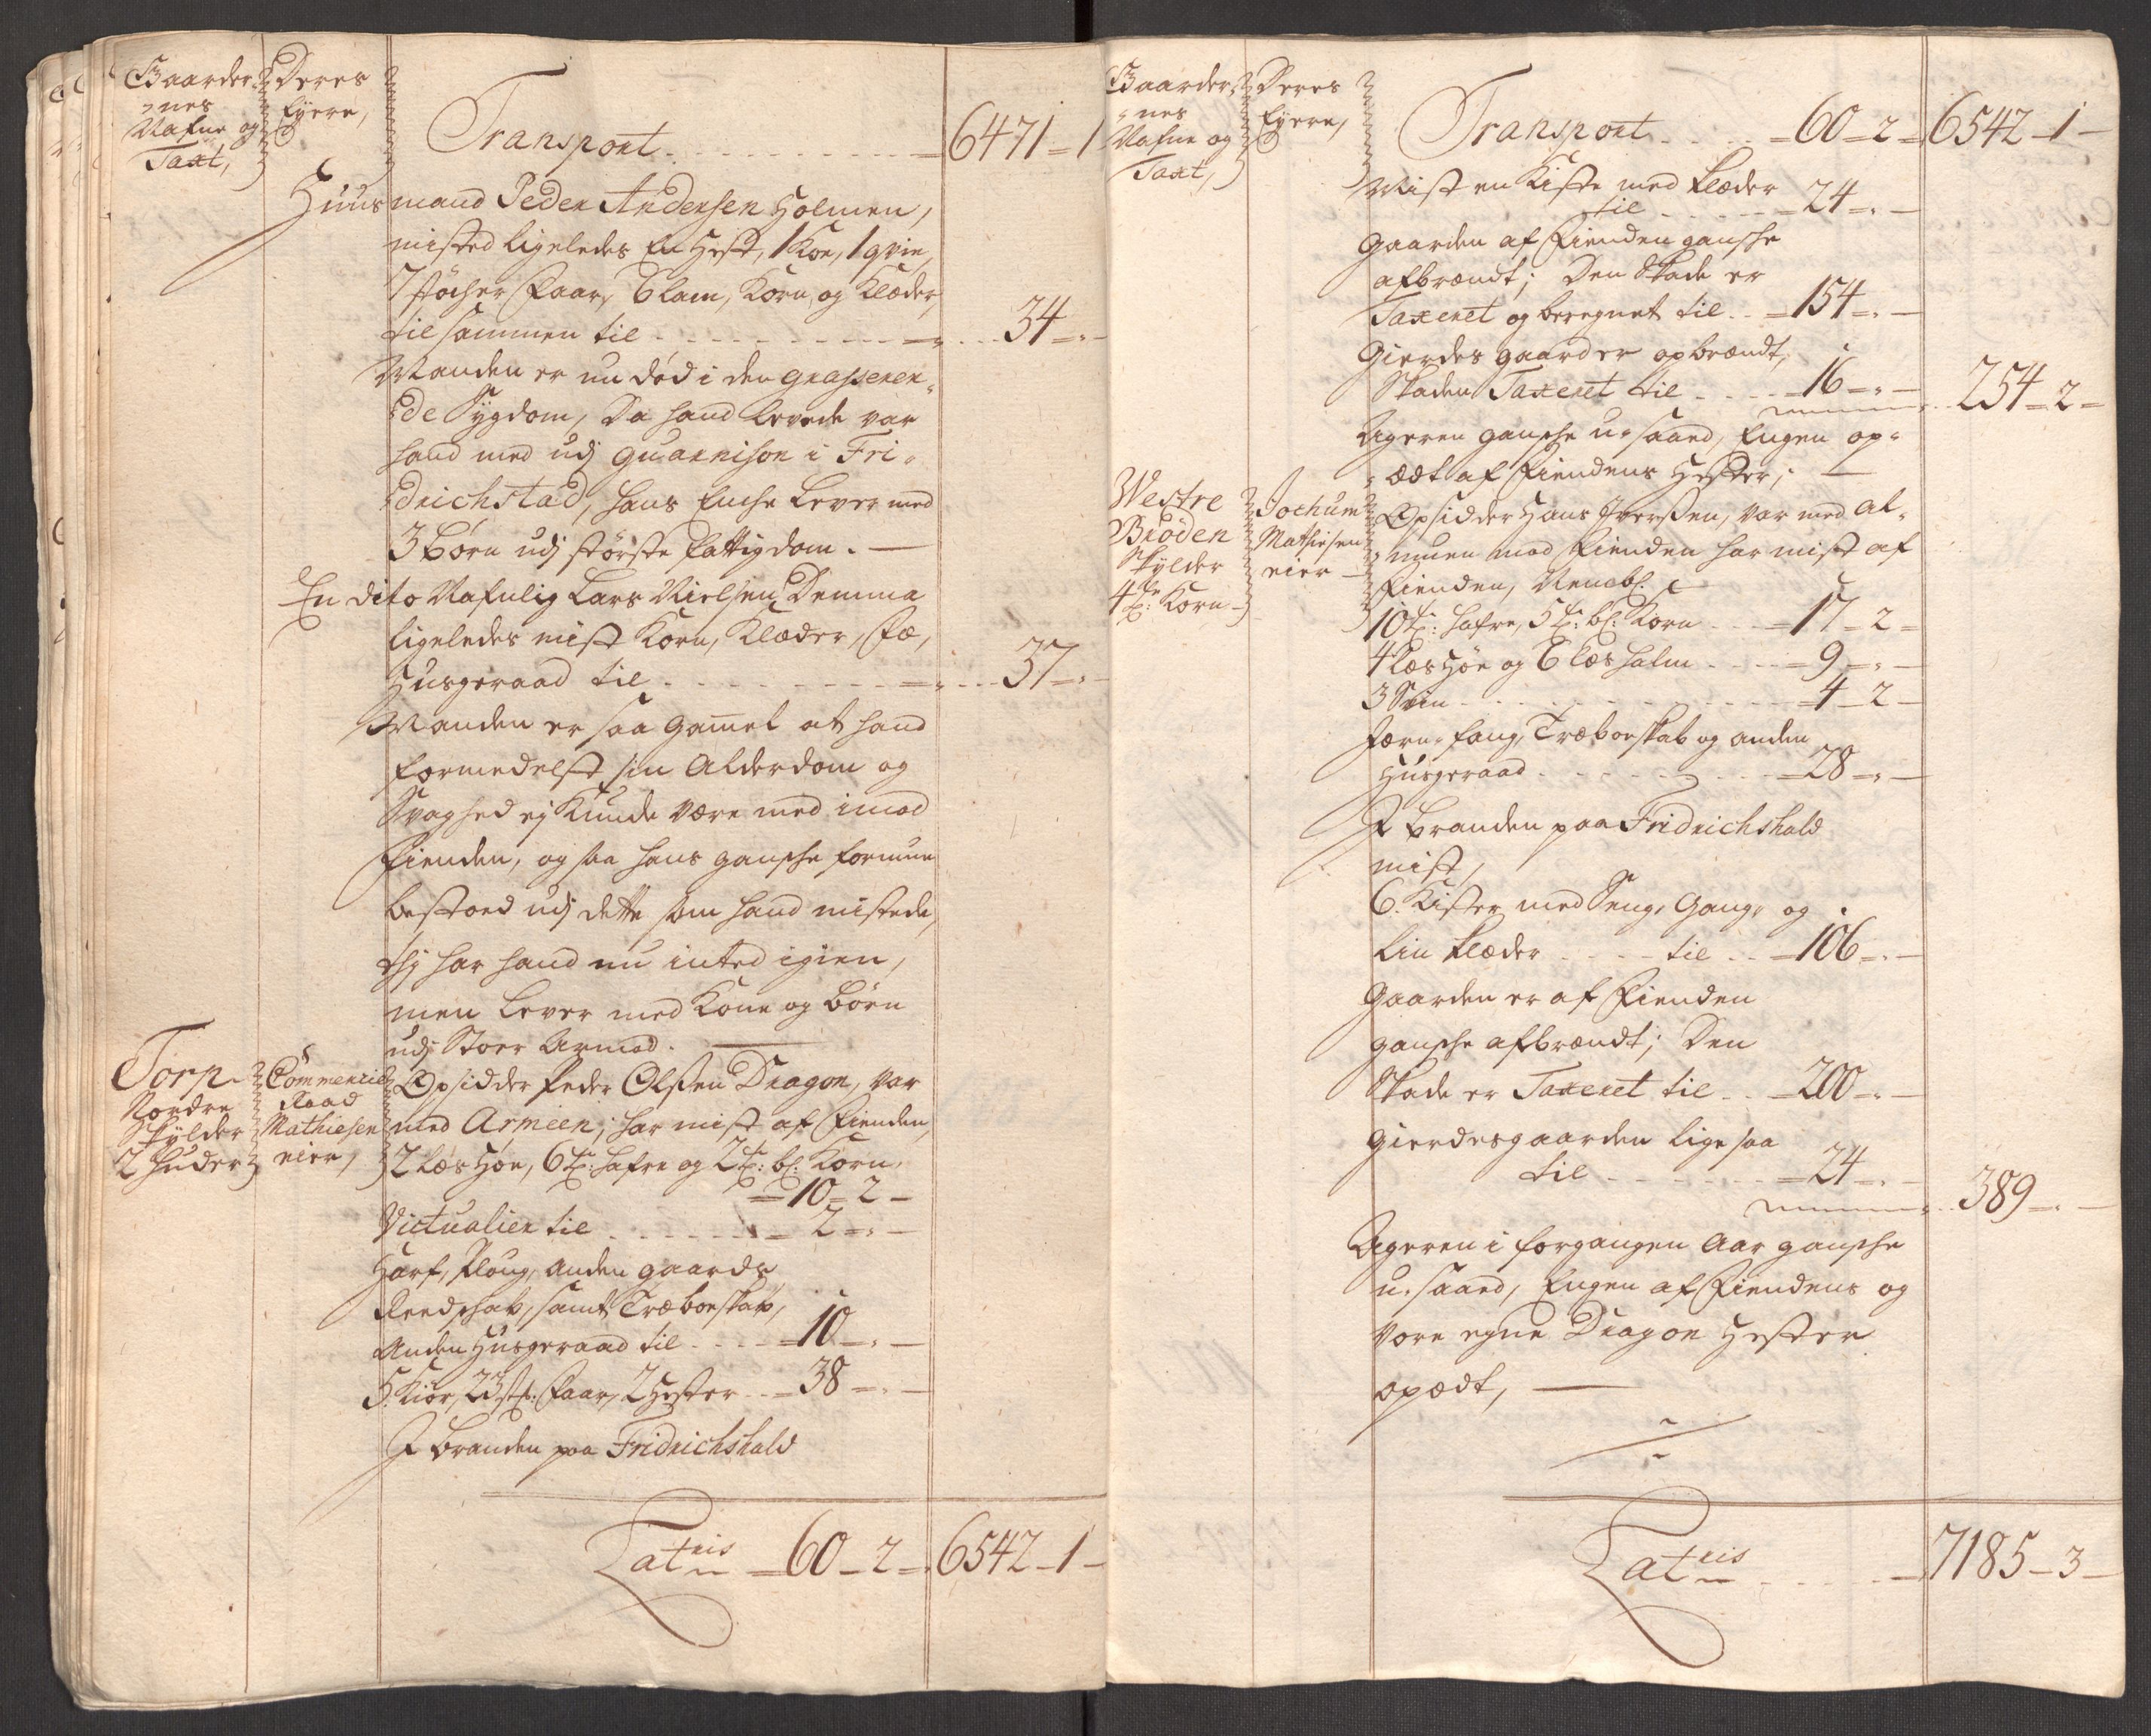 Gaarder- Deres
-nes Eyere,
Nafne og
Taxt,
Transport . . . . . . . . 6471 - 1
Huusmand Peder Andersen Holmen,
misted ligeledes En Hest, 1 Koe, 1 qvie,
7 støcher Faar, 6 lam, Korn, og Klæder,
tilsammen til . . . . . . . . 34 - " -
Manden er nu død i den grasseren-
-de Sygdom, Da hand levede var
hand med udj guarnison i Fri-
-drichstad, hans Enche lever med
3 børn udj største fattigdom. —
En dito Nafnlig Lars Nielsen Demma
ligeledes mist Korn, Klæder, Fæ,
Husgeraad til . . . . . . . . 37 - " -
Manden er saa gamel at hand
formedelst sin Alderdom og
Svaghed ej Kunde være med imod
Fienden, og saa hans gansche formue
bestoed udj dette som hand mistede,
thj har hand nu inted igien,
men lever med Kone og børn
udj Stoer Armod. —
Torp Commercie
Nordre Raad
Skylder Mathiesen
2 huder eier,
Opsidder Peder Olssen Dragon, var
med Armeen; har mist af Fienden,
2 Læs Høe, 6 tr: hafre og 2 tr: bl: Korn,
- 10 - 2 -
Victualier til . . . . . 2 - " -
Harf, Ploug, Anden gaards
Reedschab, samt Træboeskab,
Anden Husgeraad til . . . 10 - " -
5 Kiør, 23 st: Faar, 2 Hester . . 38 - " -
I branden paa Fridrichshald
Lateris - 60 - 2 - 6542 - 1 -
Gaarder- Deres
-nes Eyere,
Nafne og
Taxt,
Transport . . . . - 60 - 2 - 6542 - 1 -
Mist en Kiste med klæder
til . . . . . - 24 - " -
Gaarden af Fienden gansche
afbrændt; Den Skade er
Taxeret og beregnet til . . - 154 - " -
Gierdes gaard er opbrændt,
Skaden Taxeret til . . . 16 - " - 254 - 2 -
Ageren gansche u-saaed, Engen op-
-ædt af Fiendens Hester; —
Westre Jochum
Brøden Mathiesen
Skylder eier
4 tr: Korn
Opsidder Hans Iverssen, var med Al-
-muen mod Fienden har mist af
Fienden, Nembl:
10 tr: hafre, 5 tr: bl: Korn . . - 17 - 2 -
4 læs Høe og 6 læs halm . . . - 9 - " -
3 Svin . . . . . . . . . - 4 - 2 -
Jern-fang, Træboeskab og anden
Husgeraad . . . . . . . - 28 - " -
I branden paa Fridrichshald
mist,
6. Kister med Seng, Gang, og
lin klæder . . . til . . - 106 - " -
Gaarden er af Fienden
gansche afbrændt; Den
Skade er Taxeret til . . - 200 - " -
Gierdesgaarden lige saa
til . . . . . . - 24 - " -
389 - " -
Ageren i forgangen Aar gansche
u-saaed, Engen af Fiendens og
vore egne Dragon Hester
opædt, —
Lateris . . . . . - 7185 - 3 -